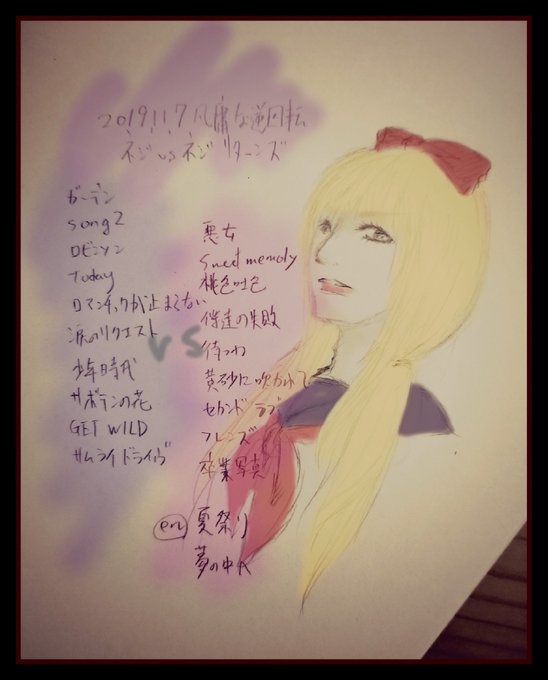 2019.11.7 凡庸な逆回転
ネジ vs ネジ リターンズ
ガーデン
song2
ロビンソン
Today
ロマンチックが止まらない
涙のリクエスト
少年時代
サボテンの花
GET WILD
サムライドライヴ
vs
悪女
sweet memoly
桃色吐息
僕達の失敗
待つわ
黄砂に吹かれて
セカンドラブ
フレンズ
卒業写真
en 夏祭り
夢の中へ